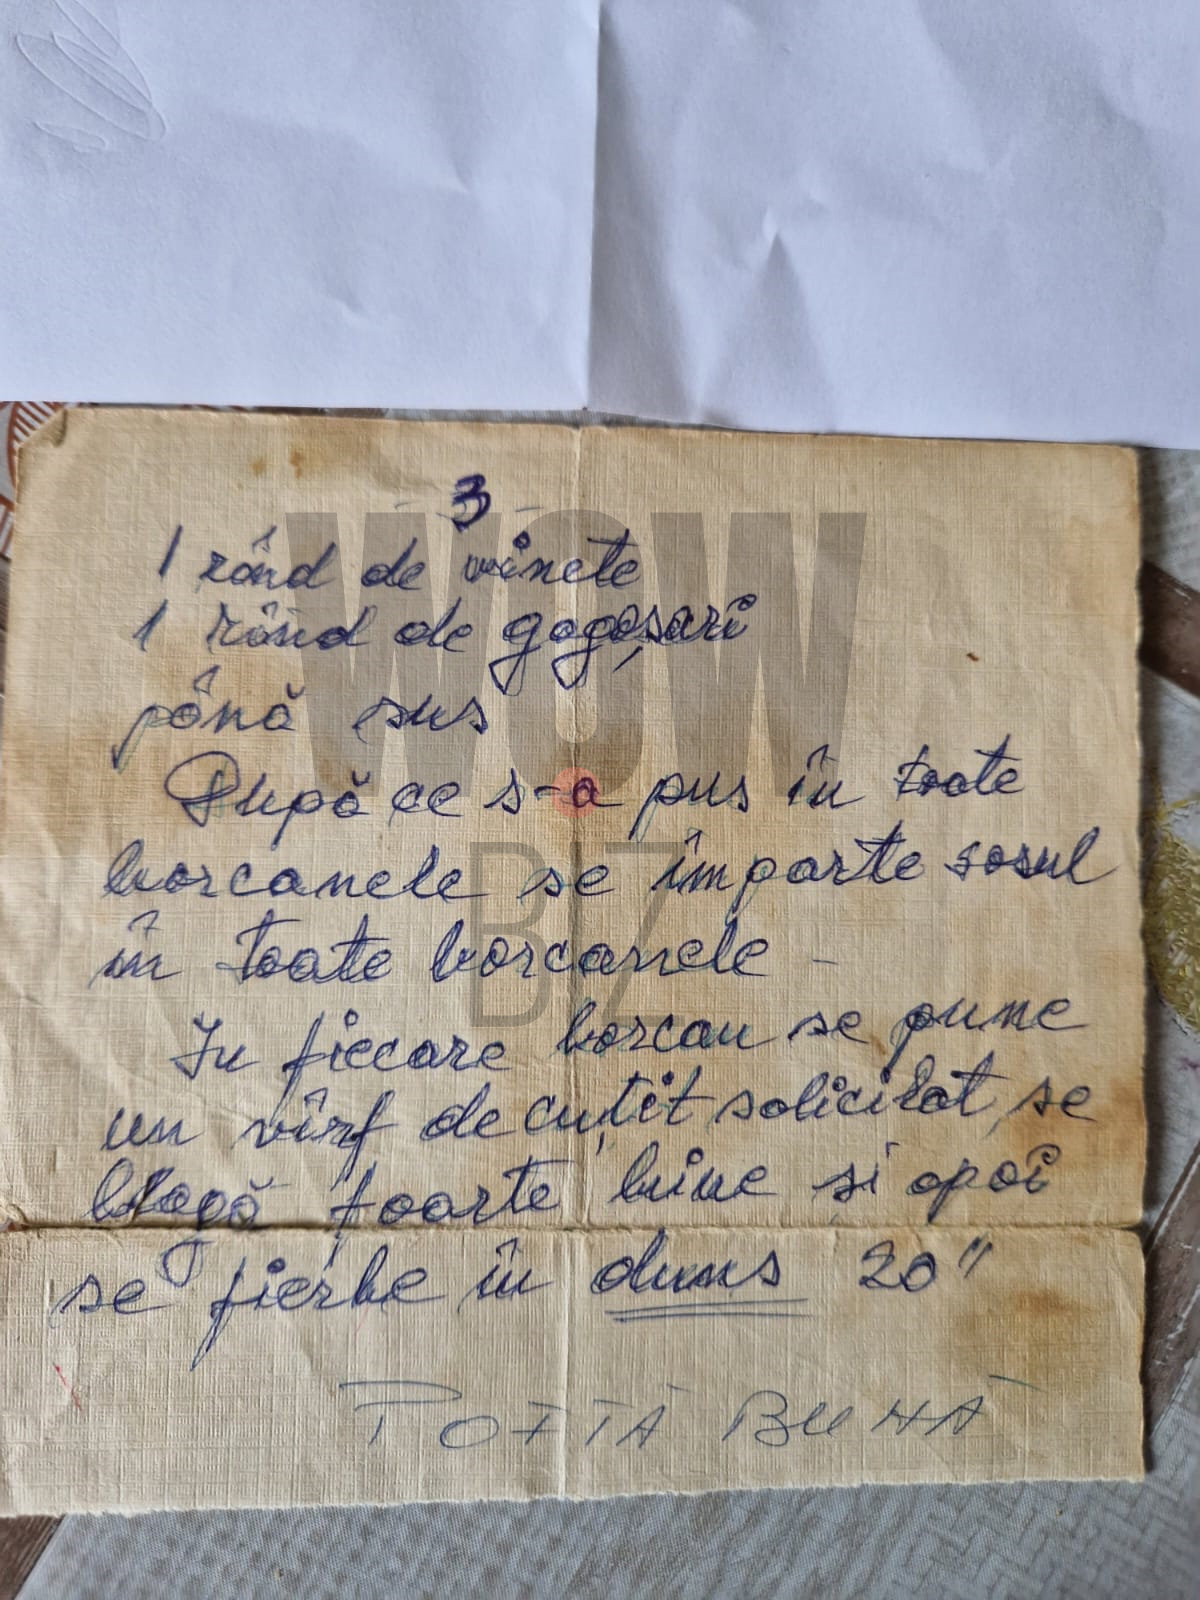 - 3 -
1 rând de vinete
1 rând de gogoșari
până sus
După ce s-a pus în toate
borcanele se împarte sosul
în toate borcanele -
In fiecare borcan se pune
un vîrf de cuțit solicilat, se
leagă foarte bine și apoi
se fierbe în duns 20"
POFTĂ BUNĂ
WOW
BIZ